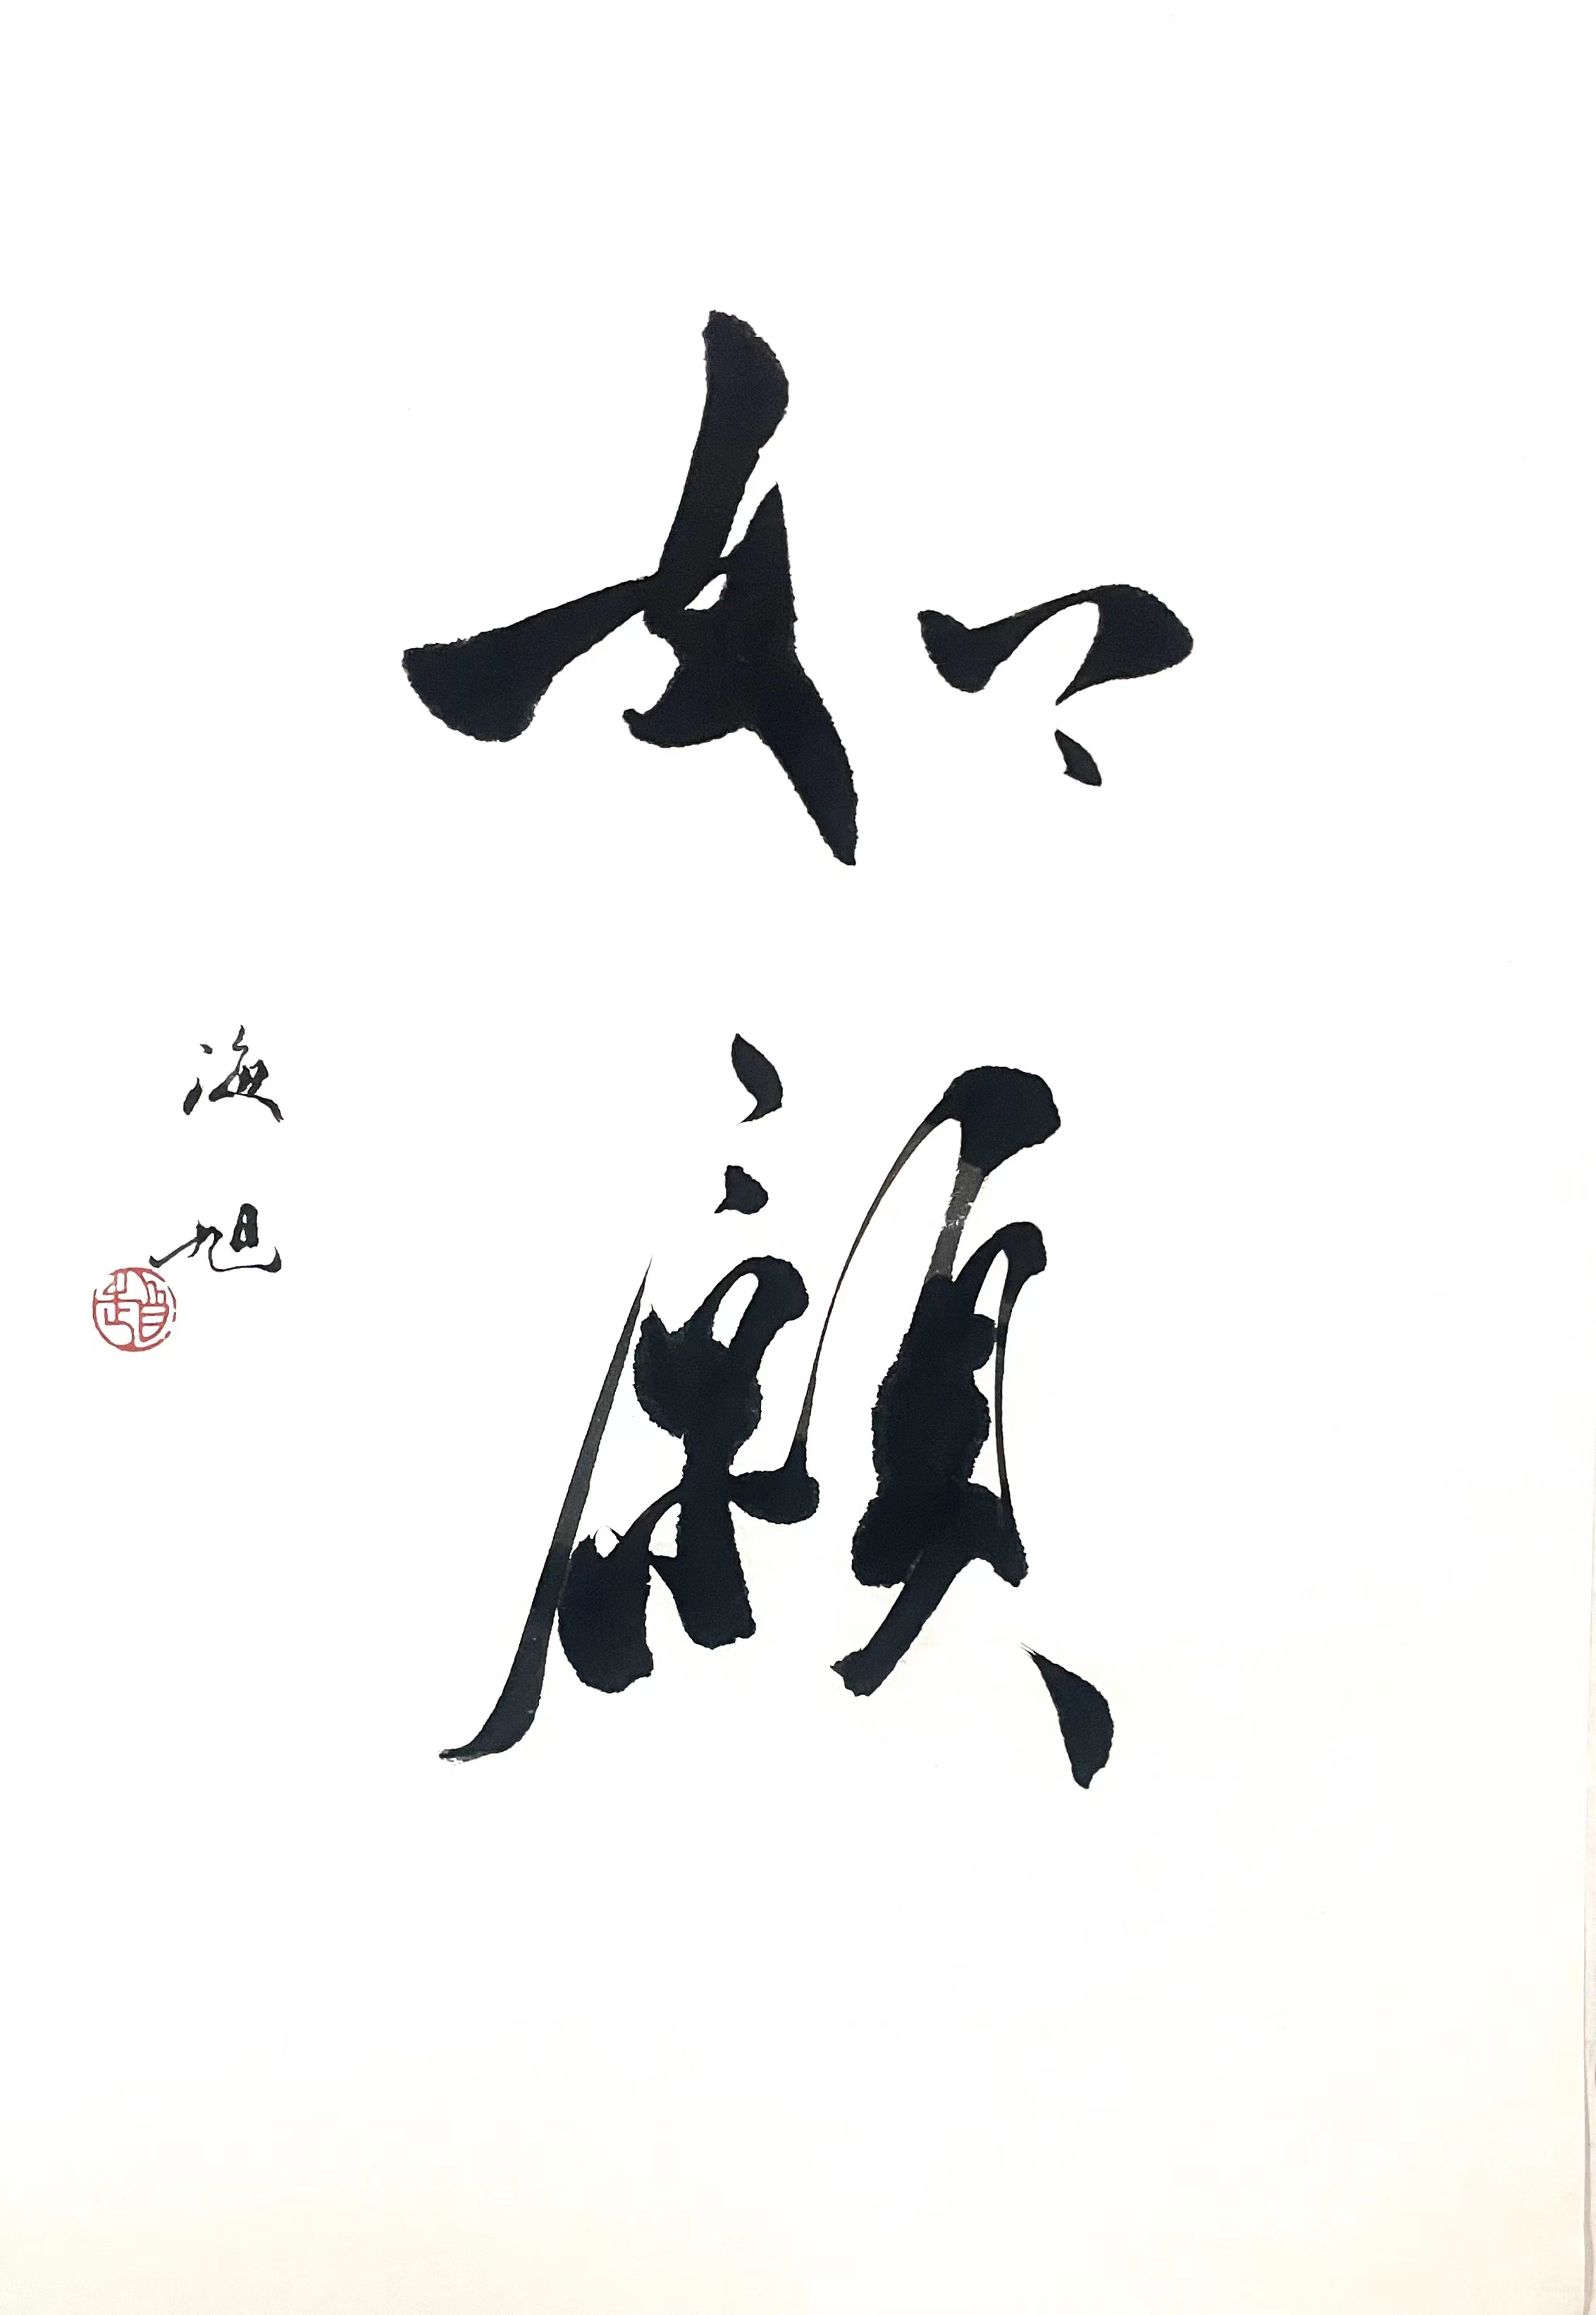 如願
海旭
趙